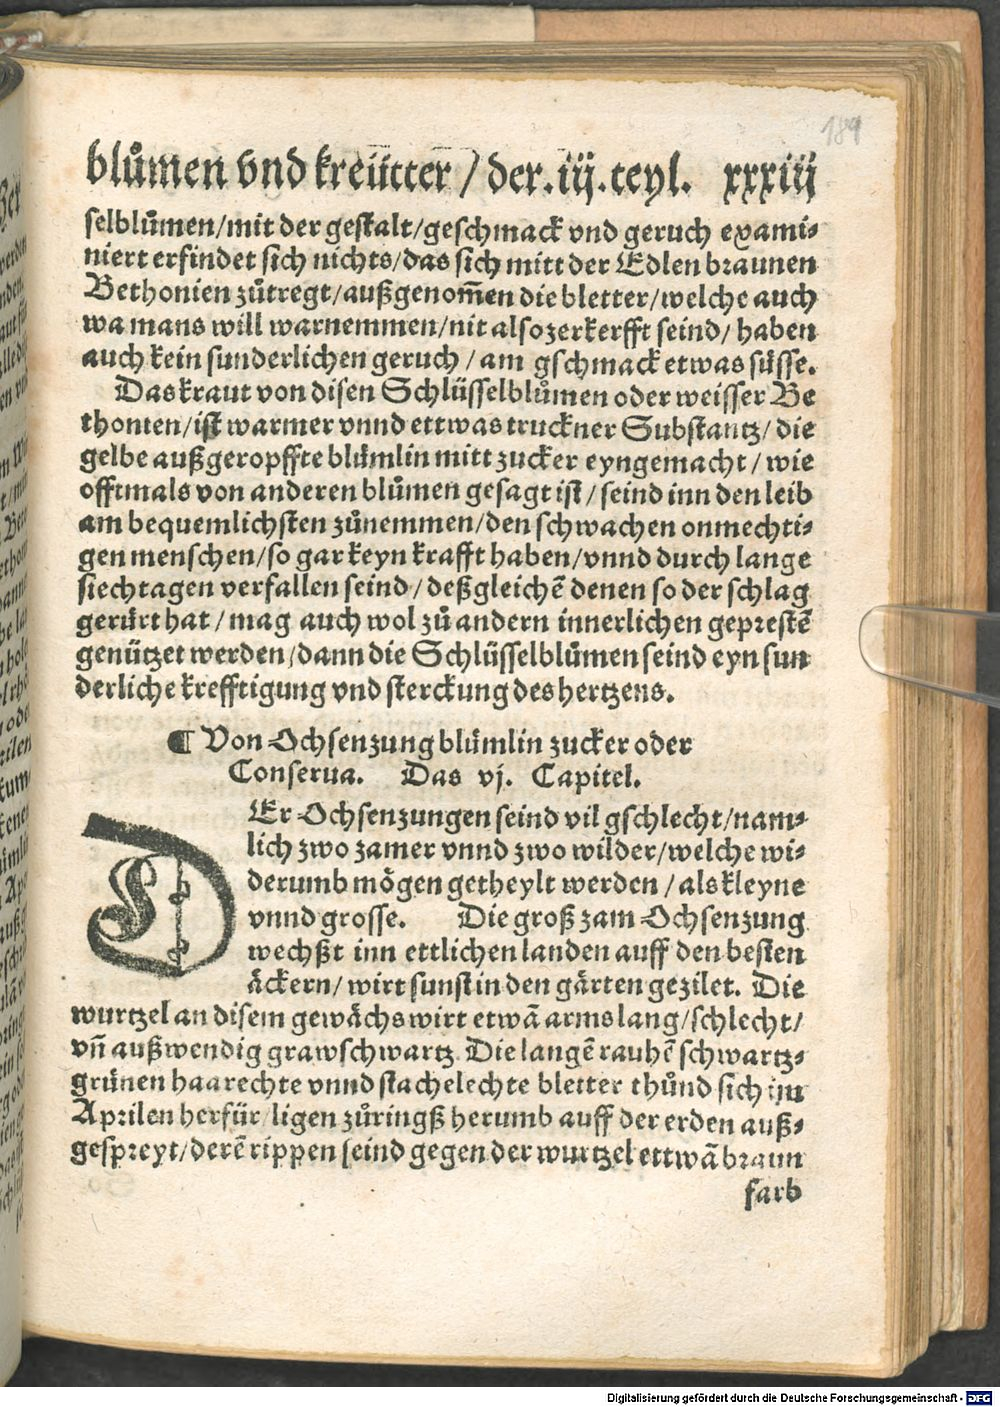 189
blůmen vnd kreütter / der.iij.teyl. xxxiij
selblůmen/mit der gestalt/geschmack vnd geruch exami-
niert erfindet sich nichts/das sich mitt der Edlen braunen
Bethonien zůtregt/außgenom̃en die bletter/welche auch
wa mans will warnemmen/nit also zerkerfft seind/ haben
auch kein sunderlichen geruch / am gschmack etwas süsse.
Das kraut von disen Schlüsselblůmen oder weisser Be
thonien/ist warmer vnnd ettwas truckner Substantz/ die
gelbe außgeropffte blůmlin mitt zucker eyngemacht / wie
offtmals von anderen blůmen gesagt ist / seind inn den leib
am bequemlichsten zůnemmen/den schwachen onmechti-
gen menschen/so gar keyn krafft haben/vnnd durch lange
siechtagen verfallen seind/ deßgleichẽ denen so der schlag
gerůrt hat / mag auch wol zů andern innerlichen geprestẽ
genützet werden/dann die Schlüsselblůmen seind eyn sun
derliche krefftigung vnd sterckung des hertzens.
¶ Von Ochsenzung blůmlin zucker oder
Conserua. Das vj. Capitel.
DEr Ochsenzungen seind vil gschlecht/nam-
lich zwo zamer vnnd zwo wilder/welche wi-
derumb mögen getheylt werden / als kleyne
vnnd grosse. Die groß zam Ochsenzung
wechßt inn ettlichen landen auff den besten
äckern/ wirt sunst in den gärten gezilet. Die
wurtzel an disem gewächs wirt etwã arms lang/schlecht/
vñ außwendig grawschwartz. Die langẽ rauhẽ schwartz-
grünen haarechte vnnd stachelechte bletter thůnd sich im
Aprilen herfür/ligen zůringß herumb auff der erden auß-
gespreyt/derẽ rippen seind gegen der wurtzel ettwã braun
farb
Digitalisierung gefördert durch die Deutsche Forschungsgemeinschaft - DFG